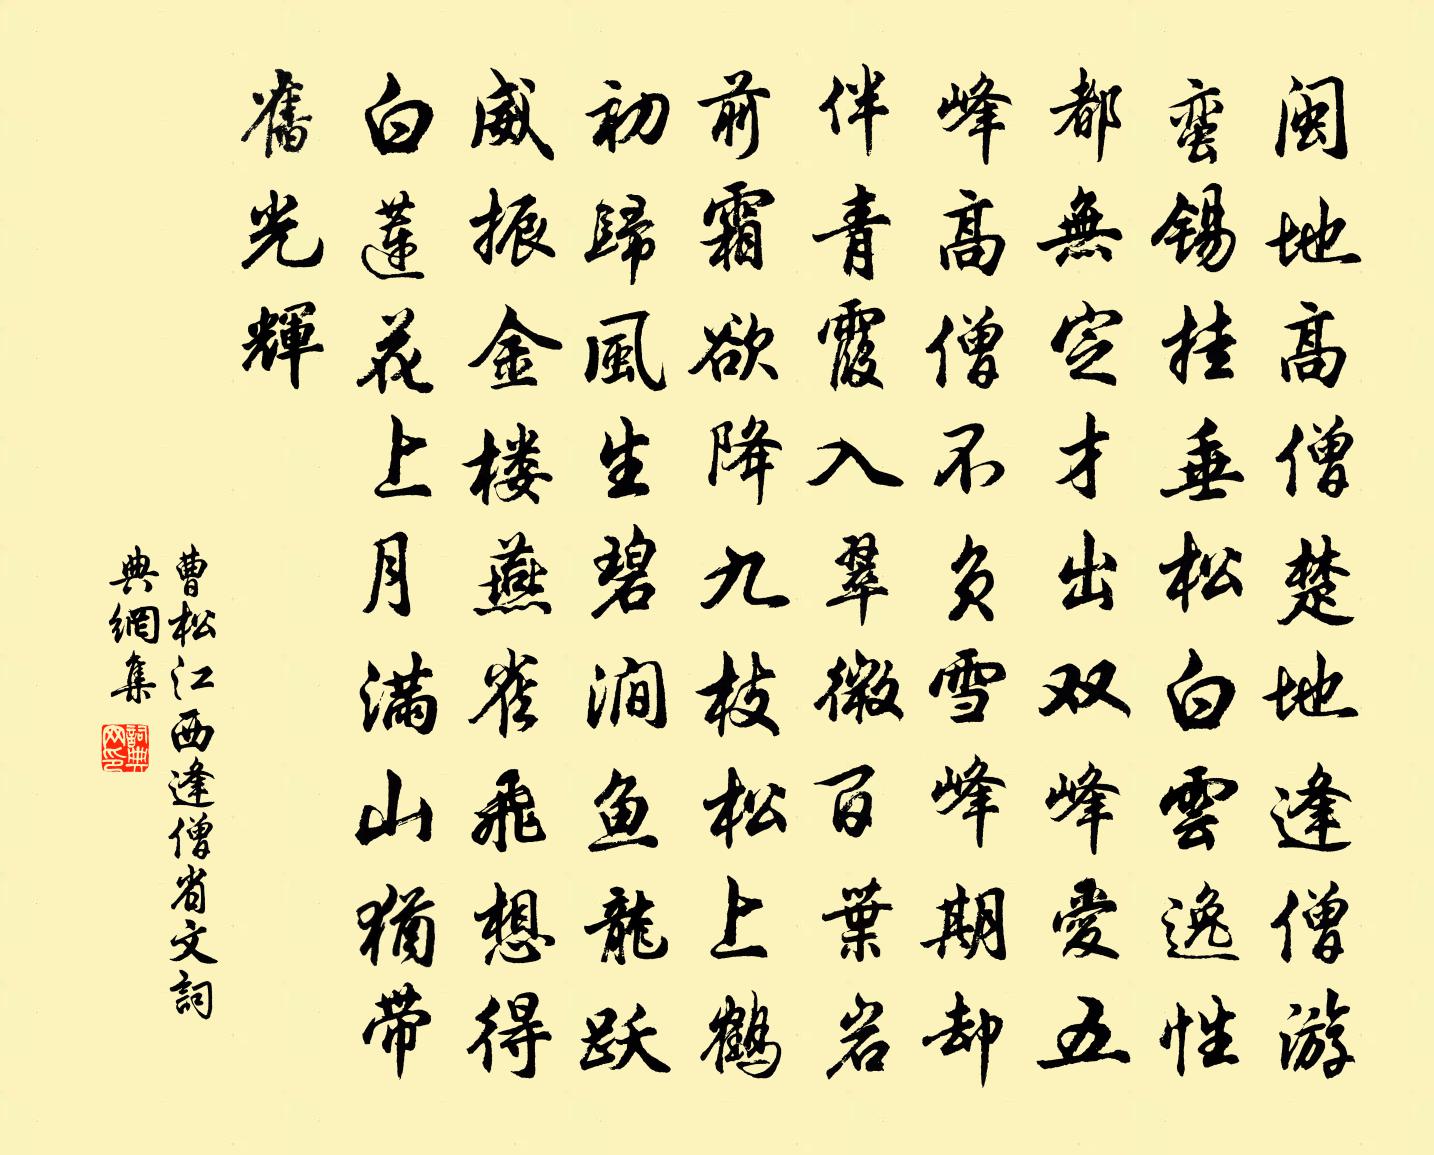 闽地高僧楚地逢僧游
蛮锡挂垂松白雲逸性
都無定才出双峰爱五
峰高僧不负雪峰期却
伴青霞入翠微百葉岩
前霜欲降九枝松上鶴
初歸風生碧澗鱼龍跃
威振金楼燕雀飛想得
白蓮花上月满山猶带
舊光輝
曹松江西逢僧省文詞
典網集
詞典网印